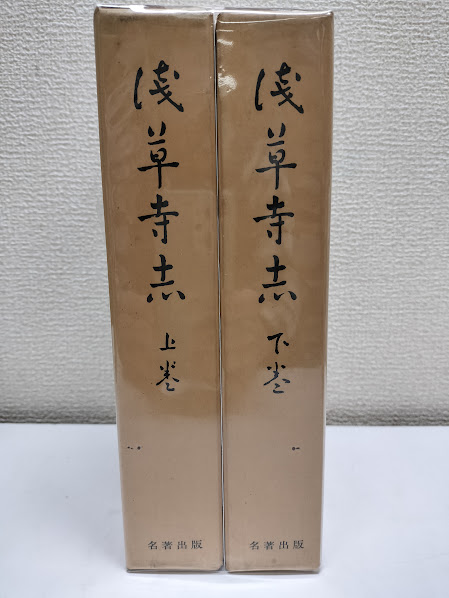 淺草寺志
上卷
名著出版
淺草寺志
下卷
名著出版